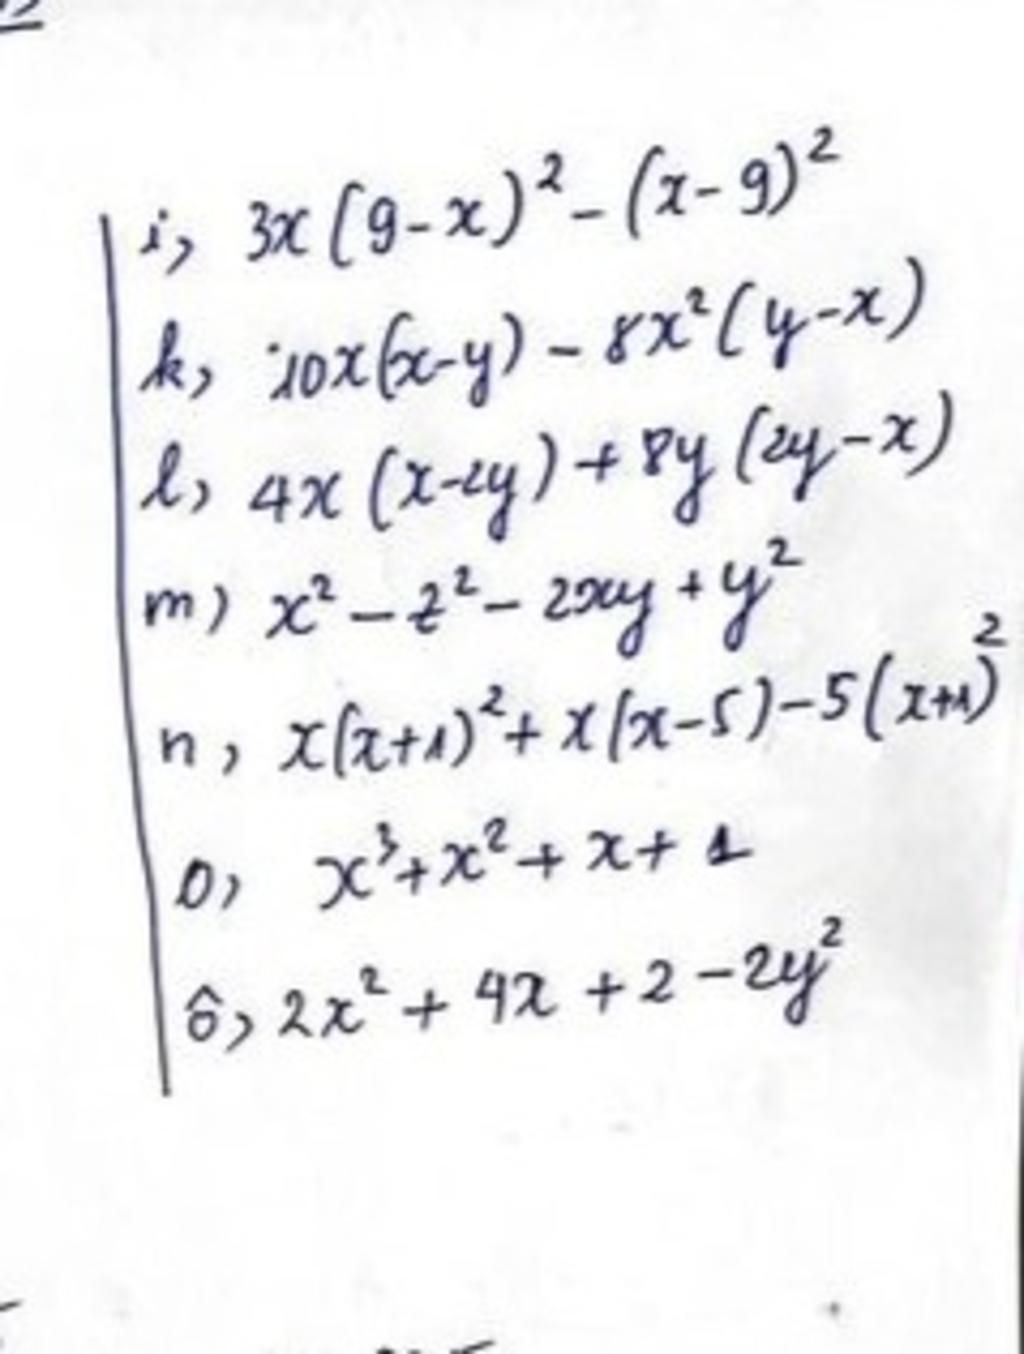 i, 3x(9-x)² - (x-9)²
k, 10x(x-y) - 8x²(y-x)
l, 4x(x-2y) + 8y(2y-x)
m) x² - z² - 2xy + y²
n, x(x+1)² + x(x-5) - 5(x+1)²
o, x³ + x² + x + 1
ô, 2x² + 4x + 2 - 2y²